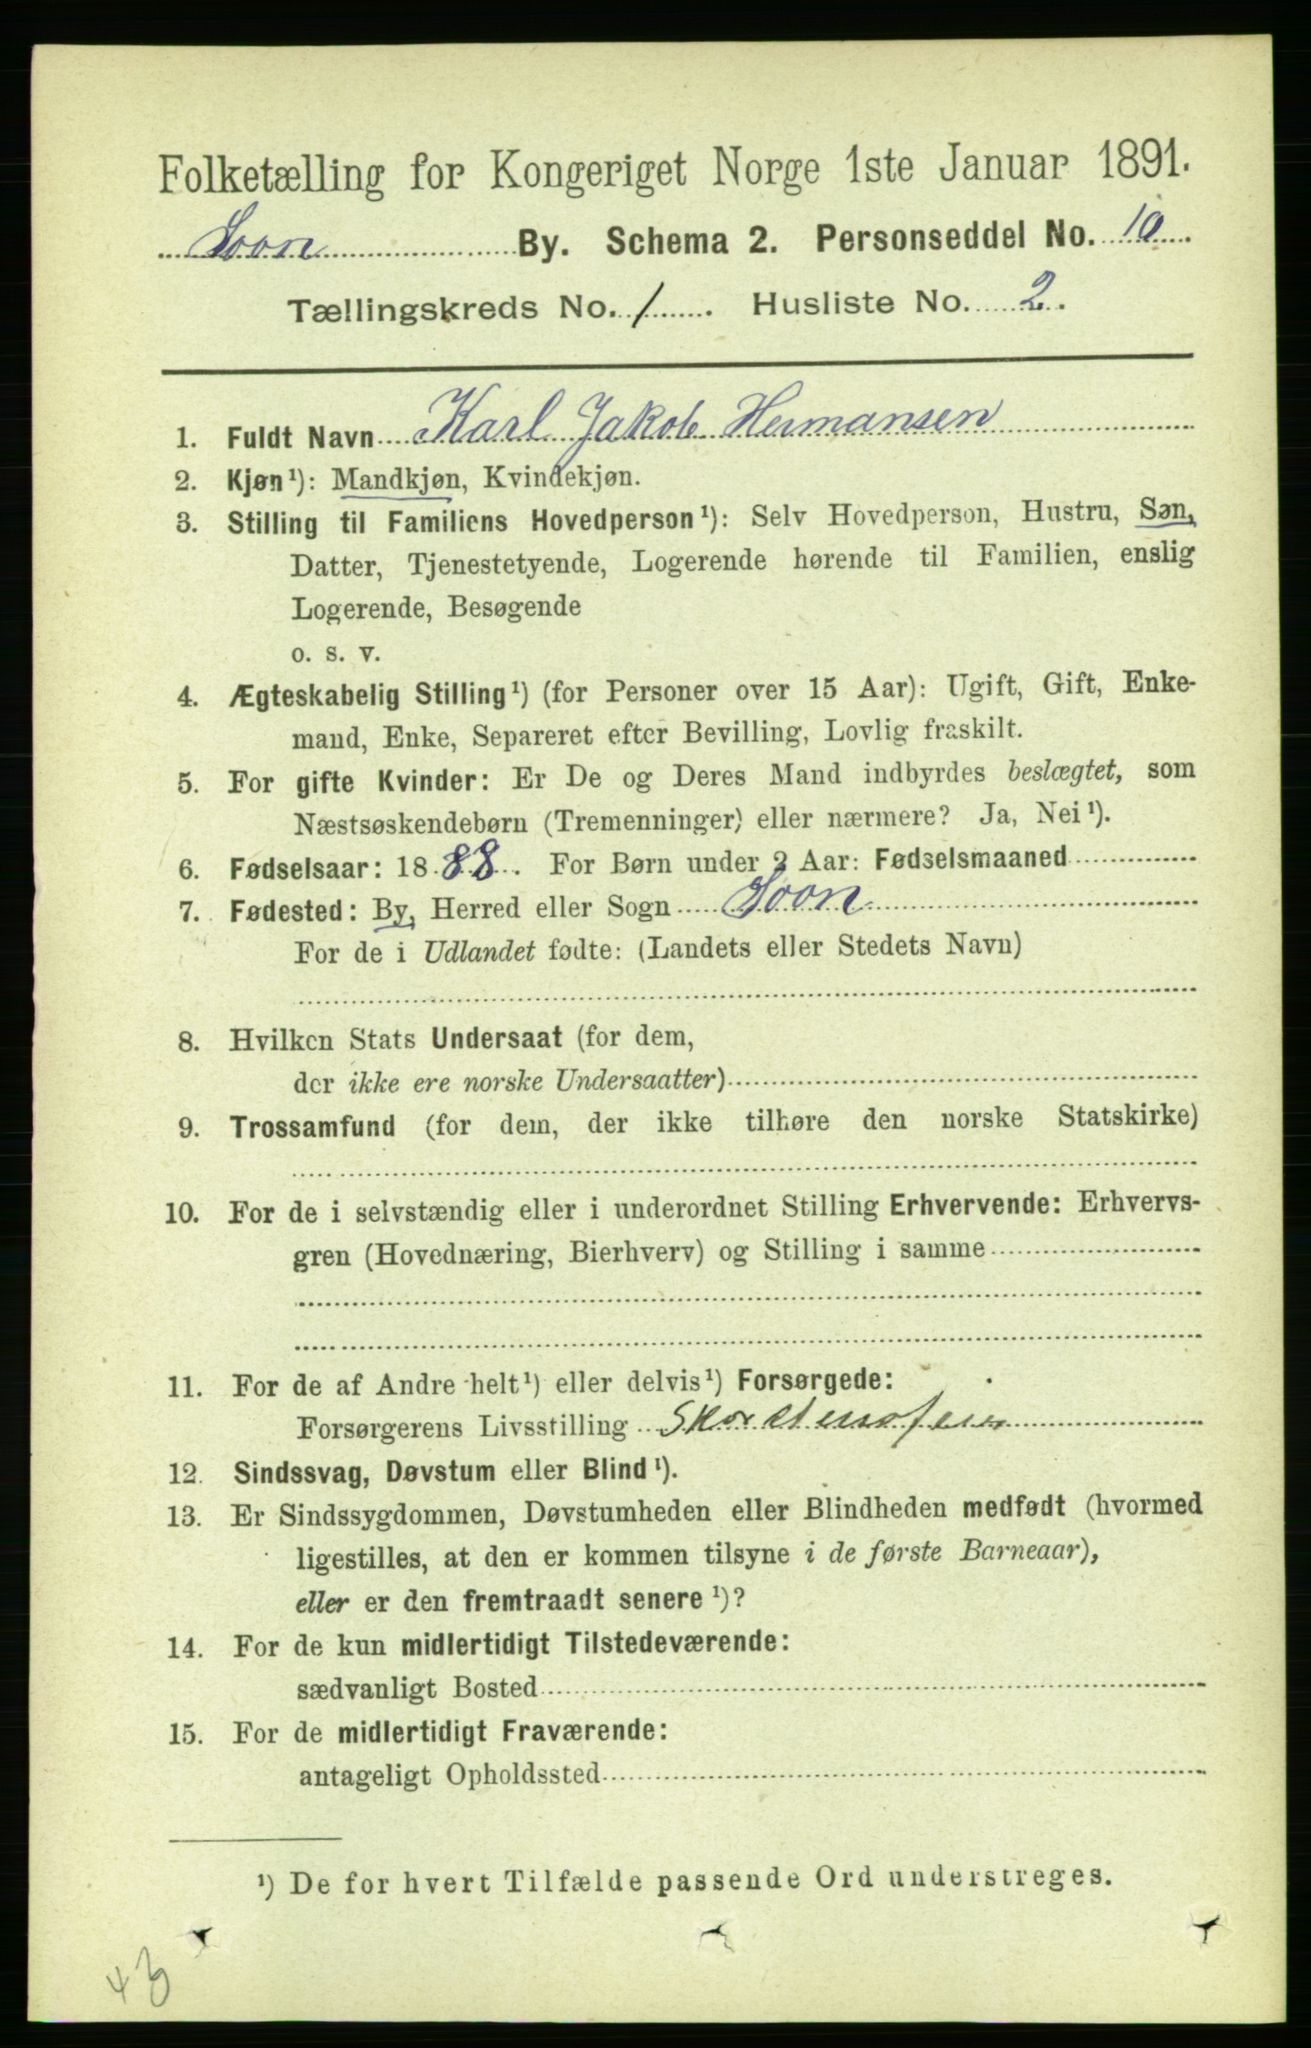 Folketælling for Kongeriget Norge 1ste Januar 1891.
Soon By. Schema 2. Personseddel No. 10
Tællingskreds No. 1. Husliste No. 2.
1. Fuldt Navn Karl Jakob Hermansen
2. Kjøn ¹): Mandkjøn, Kvindekjøn.
3. Stilling til Familiens Hovedperson ¹): Selv Hovedperson, Hustru, Søn,
Datter, Tjenestetyende, Logerende hørende til Familien, enslig
Logerende, Besøgende
o. s. v.
4. Ægteskabelig Stilling ¹) (for Personer over 15 Aar): Ugift, Gift, Enke-
mand, Enke, Separeret efter Bevilling, Lovlig fraskilt.
5. For gifte Kvinder: Er De og Deres Mand indbyrdes beslægtet, som
Næstsøskendebørn (Tremenninger) eller nærmere? Ja, Nei ¹).
6. Fødselsaar: 1888. For Børn under 2 Aar: Fødselsmaaned
7. Fødested: By, Herred eller Sogn Soon
For de i Udlandet fødte: (Landets eller Stedets Navn)
8. Hvilken Stats Undersaat (for dem,
der ikke ere norske Undersaatter)
9. Trossamfund (for dem, der ikke tilhøre den norske Statskirke)
10. For de i selvstændig eller i underordnet Stilling Erhvervende: Erhvervs-
gren (Hovednæring, Bierhverv) og Stilling i samme
11. For de af Andre helt ¹) eller delvis ¹) Forsørgede:
Forsørgerens Livsstilling Skorstensfeier
12. Sindssvag, Døvstum eller Blind ¹).
13. Er Sindssygdommen, Døvstumheden eller Blindheden medfødt (hvormed
ligestilles, at den er kommen tilsyne i de første Barneaar),
eller er den fremtraadt senere ¹)?
14. For de kun midlertidigt Tilstedeværende:
sædvanligt Bosted
15. For de midlertidigt Fraværende:
antageligt Opholdssted
¹) De for hvert Tilfælde passende Ord understreges.
43